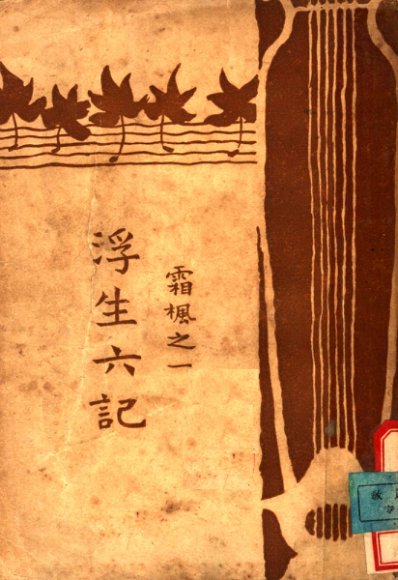 霜楓之一
浮生六記